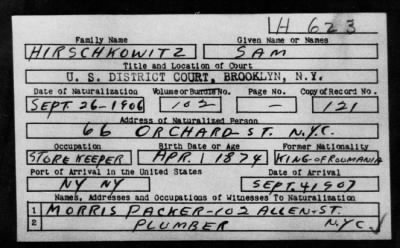 H 623
Family Name Given Name or Names
HIRSCHKOWITZ SAM
Title and Location of Court
U. S. DISTRICT COURT, BROOKLYN, N.Y.
Date of Naturalization Volume or Bundle No. Page No. Copy of Record No.
SEPT. 26-1906 102 — 121
Address of Naturalized Person
66 ORCHARD ST. N.Y.C.
Occupation Birth Date or Age Former Nationality
STORE KEEPER APR. 1 1874 KING OF ROUMANIA
Port of Arrival in the United States Date of Arrival
NY NY SEPT. 4 1907
Names, Addresses and Occupations of Witnesses To Naturalization
1 MORRIS PACKER-102 ALLEN-ST.
2 PLUMBER N.Y.C.